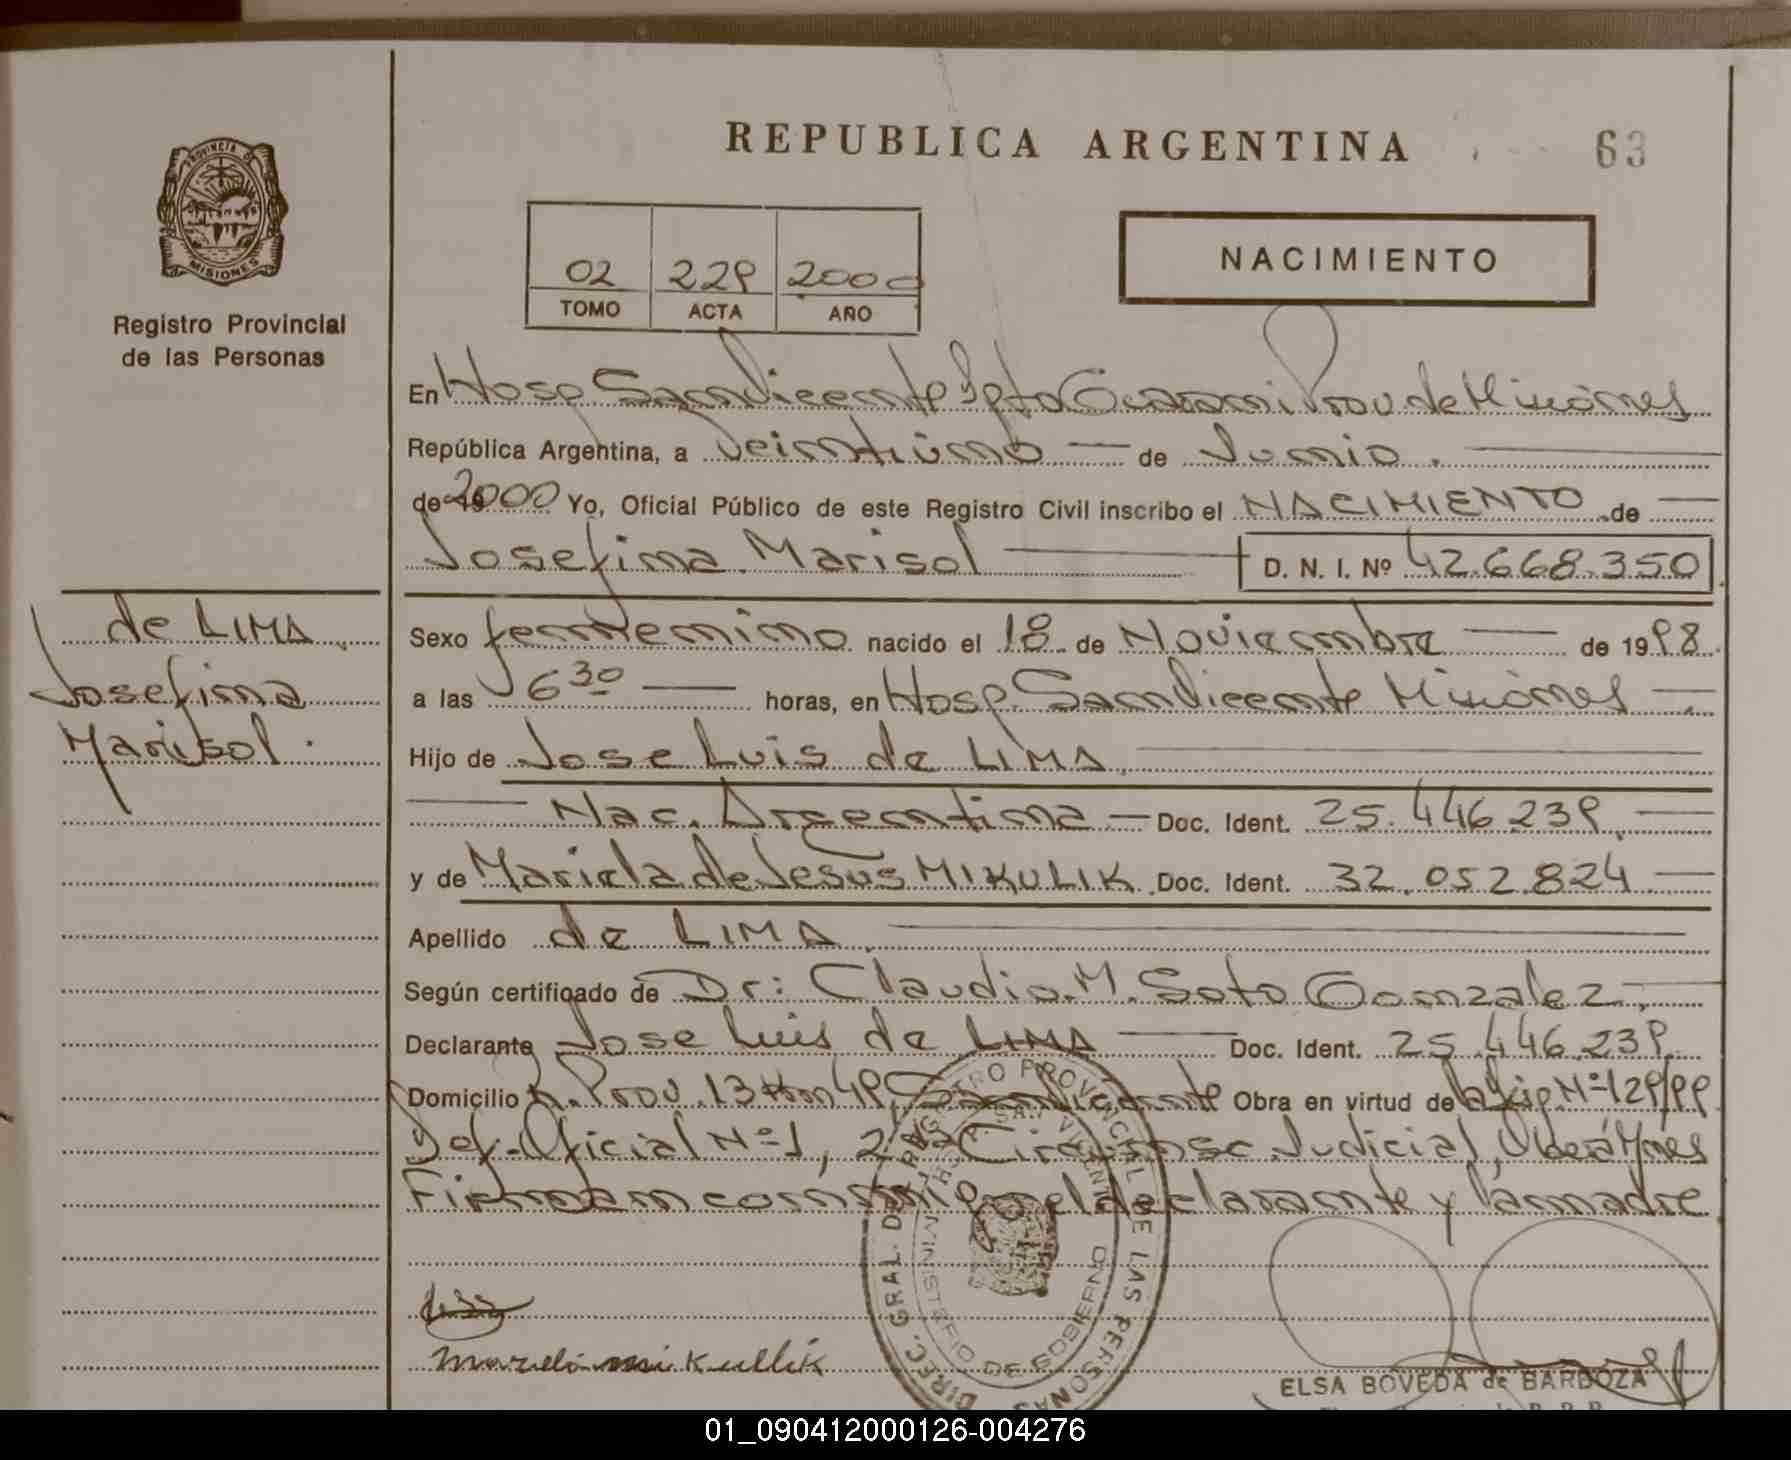 REPUBLICA ARGENTINA
63
PROVINCIA DE
MISIONES
Registro Provincial
de las Personas
02 229 2000
TOMO ACTA AÑO
NACIMIENTO
En Hosp San Vicente Dpto Guarani Prov de Misiones
República Argentina, a veintiuno de Junio.
de 19 2000 Yo, Oficial Público de este Registro Civil inscribo el NACIMIENTO de
Josefina Marisol D. N. I. Nº 42.668.350
de LIMA
Josefina
Marisol.
Sexo femenino nacido el 18 de Noviembre de 1998
a las 6 30 horas, en Hosp. San Vicente Misiones
Hijo de Jose Luis de LIMA
Nac. Argentina Doc. Ident. 25.446.239
y de Mariela de Jesus MIKULIK Doc. Ident. 32.052.824
Apellido de LIMA
Según certificado de Dr: Claudio M. Soto Gonzalez
Declarante Jose Luis de LIMA Doc. Ident. 25.446.239
Domicilio R. Prov. 13 Km 49 San Vicente Obra en virtud de la Nº 129/99
Def. Oficial Nº 1, 2da Circunsc Judicial, Oberá Mnes
Firman conmigo el declarante y la madre
DIREC. GRAL. DEL REGISTRO PROVINCIAL DE LAS PERSONAS
MINISTERIO DE GOBIERNO
mikullik
ELSA BOVEDA de BARBOZA
01_090412000126-004276